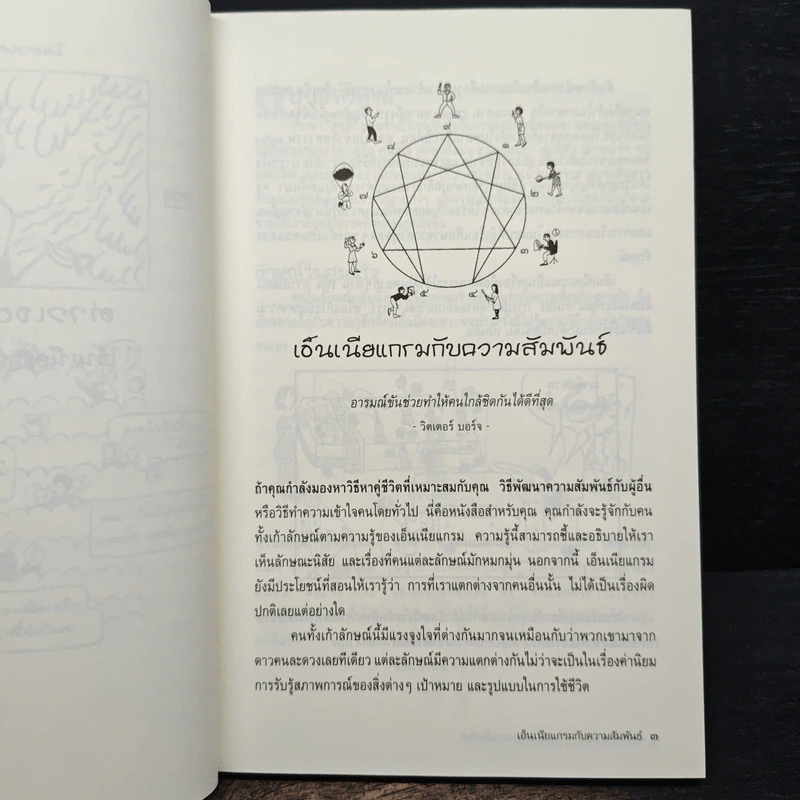 ๙
๘
๑
๗
๒
๖
๓
๕
๔
เอ็นเนียแกรมกับความสัมพันธ์
อารมณ์ขันช่วยทำให้คนใกล้ชิดกันได้ดีที่สุด
- วิตเตอร์ บอร์จ -
ถ้าคุณกำลังมองหาวิธีหาคู่ชีวิตที่เหมาะสมกับคุณ วิธีพัฒนาความสัมพันธ์กับผู้อื่น
หรือวิธีทำความเข้าใจคนโดยทั่วไป นี่คือหนังสือสำหรับคุณ คุณกำลังจะรู้จักกับคน
ทั้งเก้าลักษณ์ตามความรู้ของเอ็นเนียแกรม ความรู้นี้สามารถชี้และอธิบายให้เรา
เห็นลักษณะนิสัย และเรื่องที่คนแต่ละลักษณ์มักหมกมุ่น นอกจากนี้ เอ็นเนียแกรม
ยังมีประโยชน์ที่สอนให้เรารู้ว่า การที่เราแตกต่างจากคนอื่นนั้น ไม่ได้เป็นเรื่องผิด
ปกติเลยแต่อย่างใด
คนทั้งเก้าลักษณ์นี้มีแรงจูงใจที่ต่างกันมากจนเหมือนกับว่าพวกเขามาจาก
ดาวคนละดวงเลยทีเดียว แต่ละลักษณ์มีความแตกต่างกันไม่ว่าจะเป็นในเรื่องค่านิยม
การรับรู้สภาพการณ์ของสิ่งต่างๆ เป้าหมาย และรูปแบบในการใช้ชีวิต
เอ็นเนียแกรมกับความสัมพันธ์ ๓